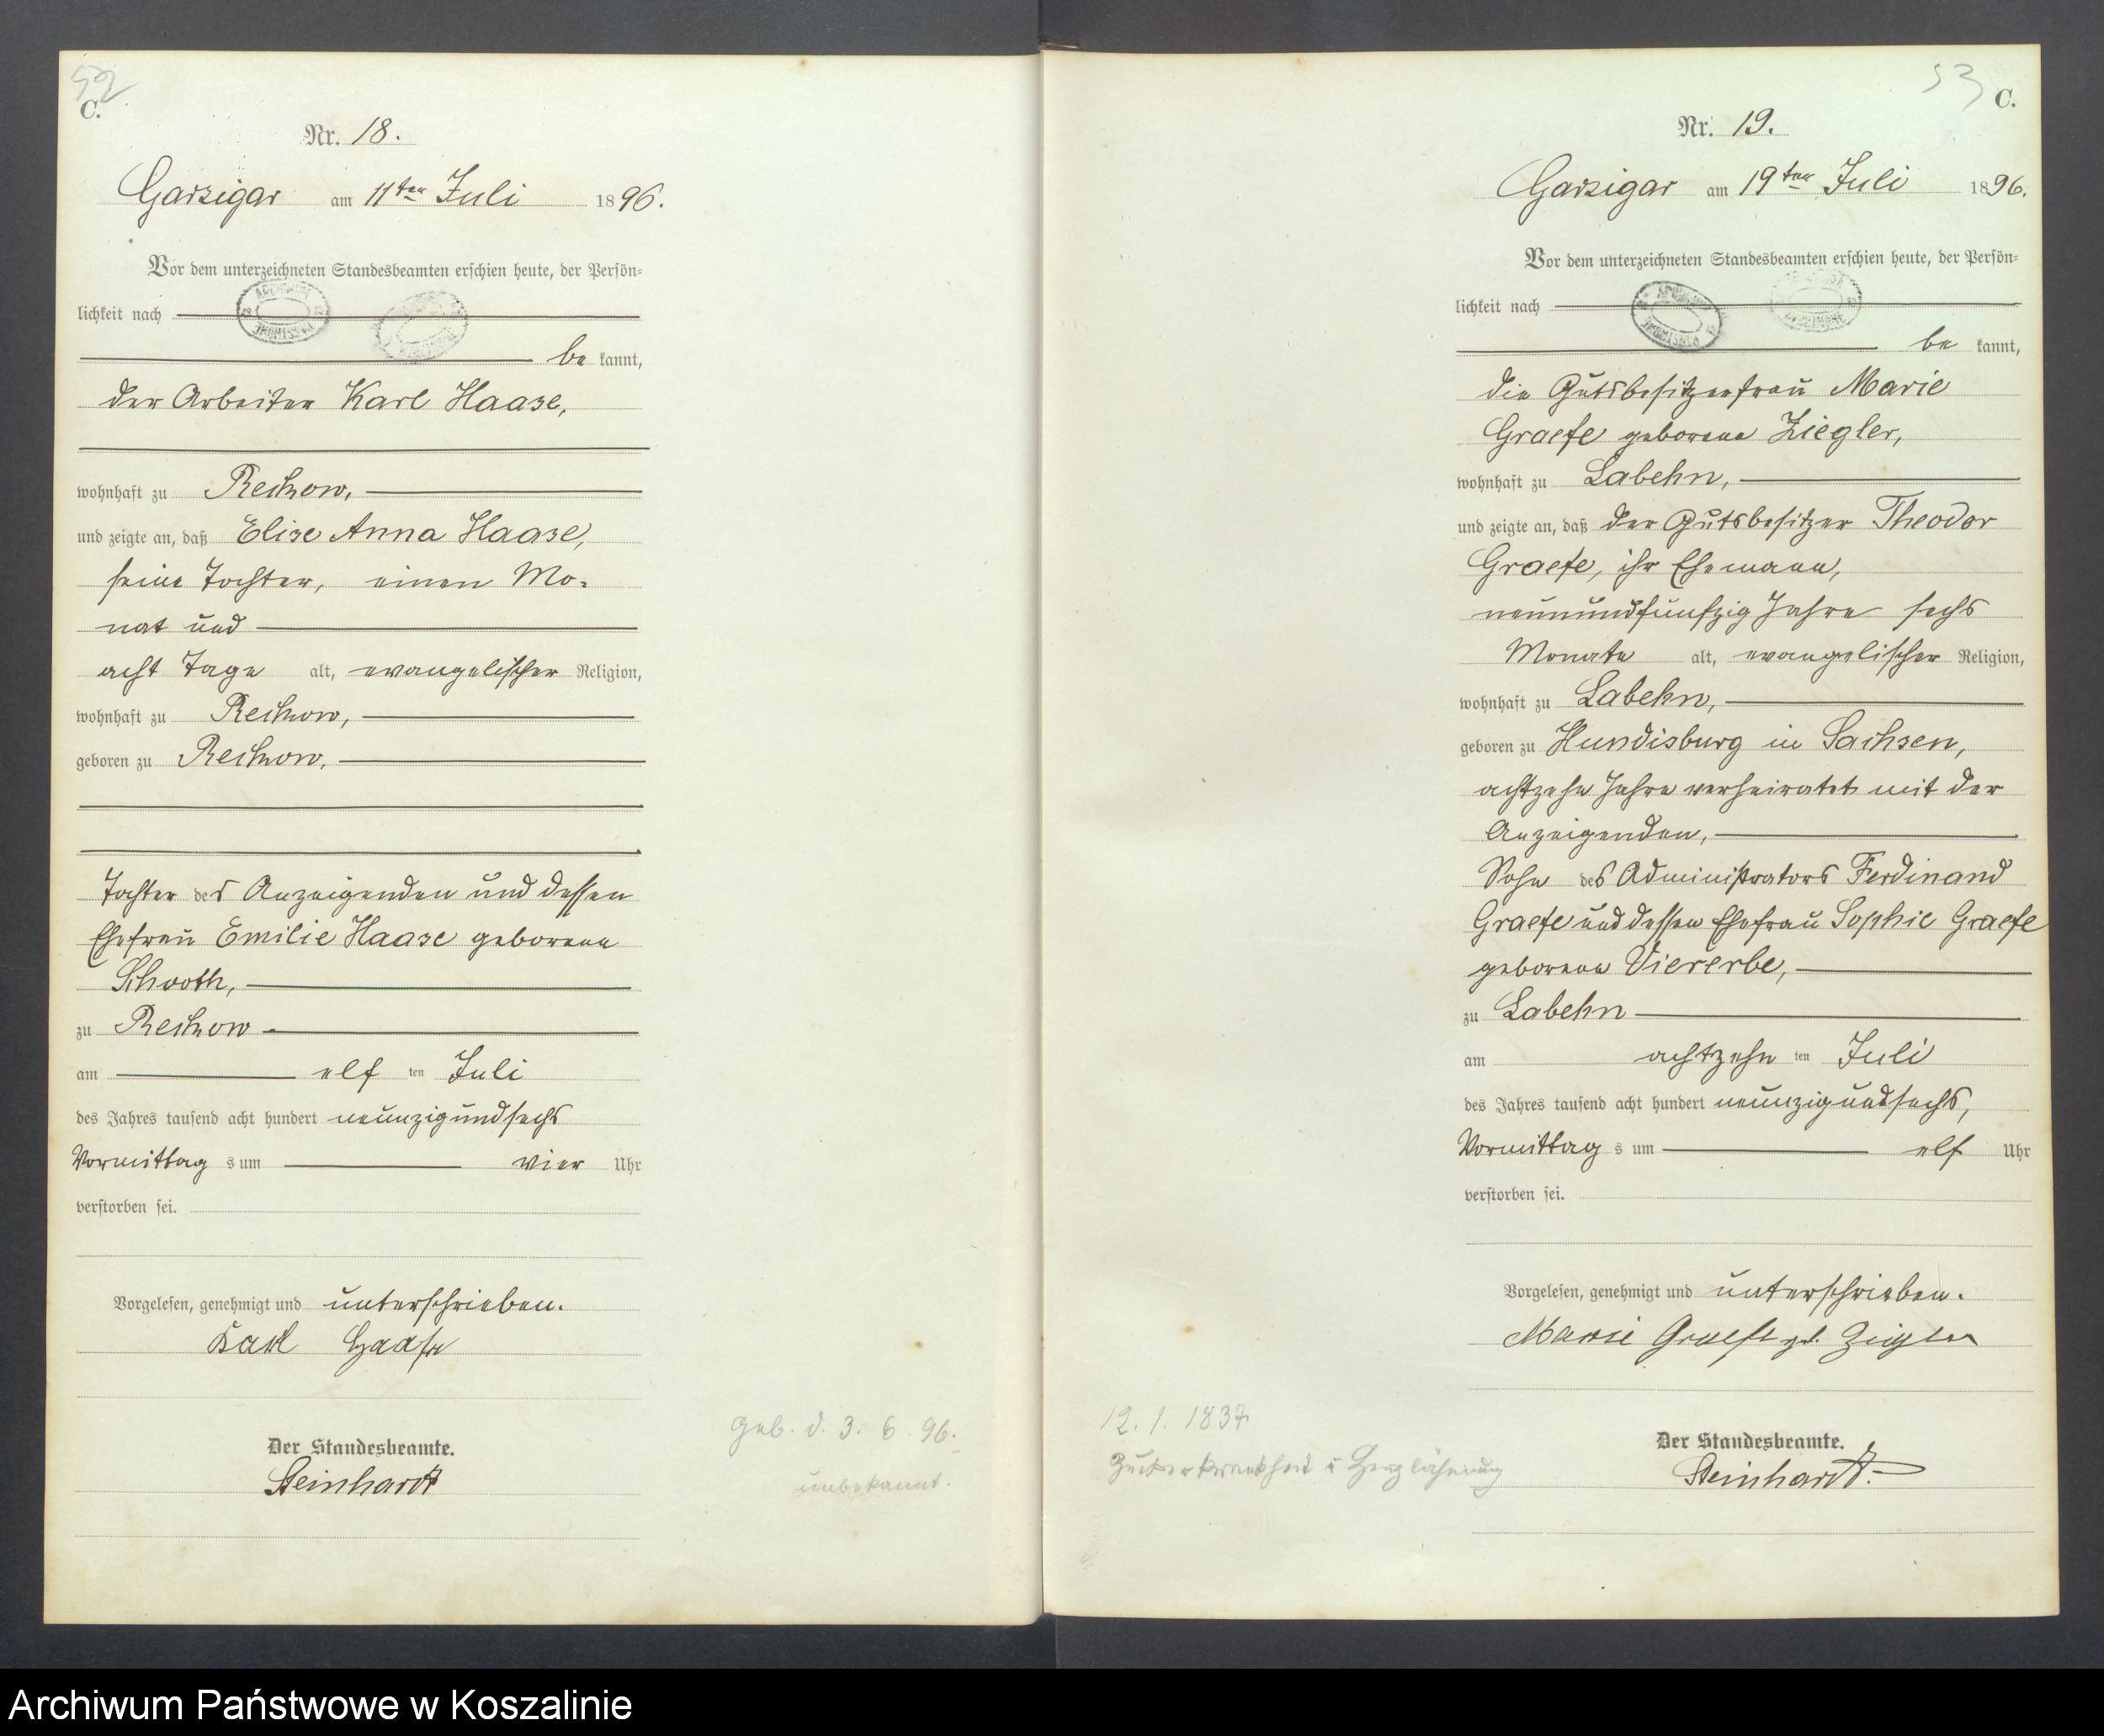 52
C.
Nr. 18.
Garzigar am 11ten Juli 1896.
Vor dem unterzeichneten Standesbeamten erschien heute, der Persön-
lichkeit nach
bekannt,
der Arbeiter Karl Haase,
wohnhaft zu Reckow,
und zeigte an, daß Elise Anna Haase,
seine Tochter, einen Mo-
nat und
acht Tage alt, evangelischer Religion,
wohnhaft zu Reckow,
geboren zu Reckow,
Tochter des Anzeigenden und dessen
Ehefrau Emilie Haase geborene
zu Reckow
am elften Juli
des Jahres tausend acht hundert neunzigundsechs
Vormittags um vier Uhr
verstorben sei.
Vorgelesen, genehmigt und unterschrieben.
Karl Haase
Der Standesbeamte.
Steinhardt
geb. d. 3. 6. 96.
unbekannt.
53
C.
Nr. 19.
Garzigar am 19ten Juli 1896.
Vor dem unterzeichneten Standesbeamten erschien heute, der Persön-
lichkeit nach
bekannt,
die Gutsbesitzerfrau Marie
Graefe geborene Ziegler,
wohnhaft zu Labehn,
und zeigte an, daß der Gutsbesitzer Theodor
Graefe, ihr Ehemann,
neunundfünfzig Jahre sechs
Monate alt, evangelischer Religion,
wohnhaft zu Labehn,
geboren zu Hundisburg in Sachsen,
achtzehn Jahre verheiratet mit der
Anzeigenden,
Sohn des Administrators Ferdinand
Graefe und dessen Ehefrau Sophie Graefe
geborene Viererbe,
zu Labehn
am achtzehnten Juli
des Jahres tausend acht hundert neunzigundsechs,
Vormittags um elf Uhr
verstorben sei.
Vorgelesen, genehmigt und unterschrieben.
Marie Graefe gb. Ziegler
Der Standesbeamte.
Steinhardt.
12. 1. 1837
Zuckerkrankheit u Herzlähmung
Archiwum Państwowe w Koszalinie